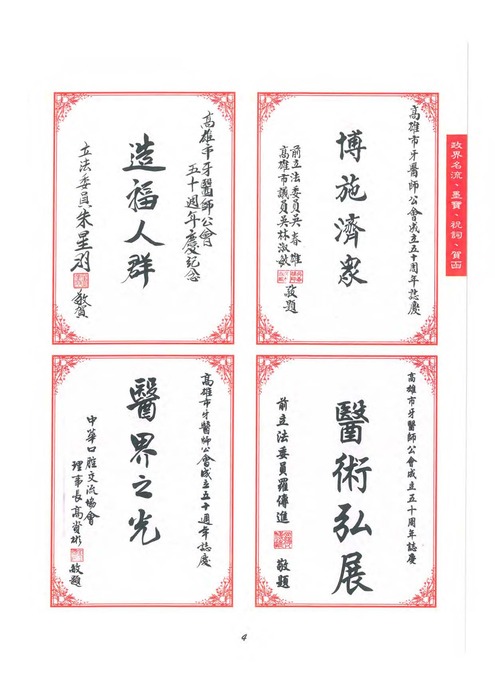 政界名流、墨寶、祝詞、賀函
高雄市牙醫師公會成立五十周年誌慶
博施濟眾
前立法委員吳春雄
高雄市議員吳林淑敏
敬題
高雄市牙醫師公會
五十週年慶紀念
造福人群
立法委員朱星羽
敬賀
高雄市牙醫師公會成立五十周年誌慶
醫術弘展
前立法委員羅傳進
敬題
高雄市牙醫師公會成立五十週年誌慶
醫界之光
中華口腔交流協會
理事長高資彬
敬題
4